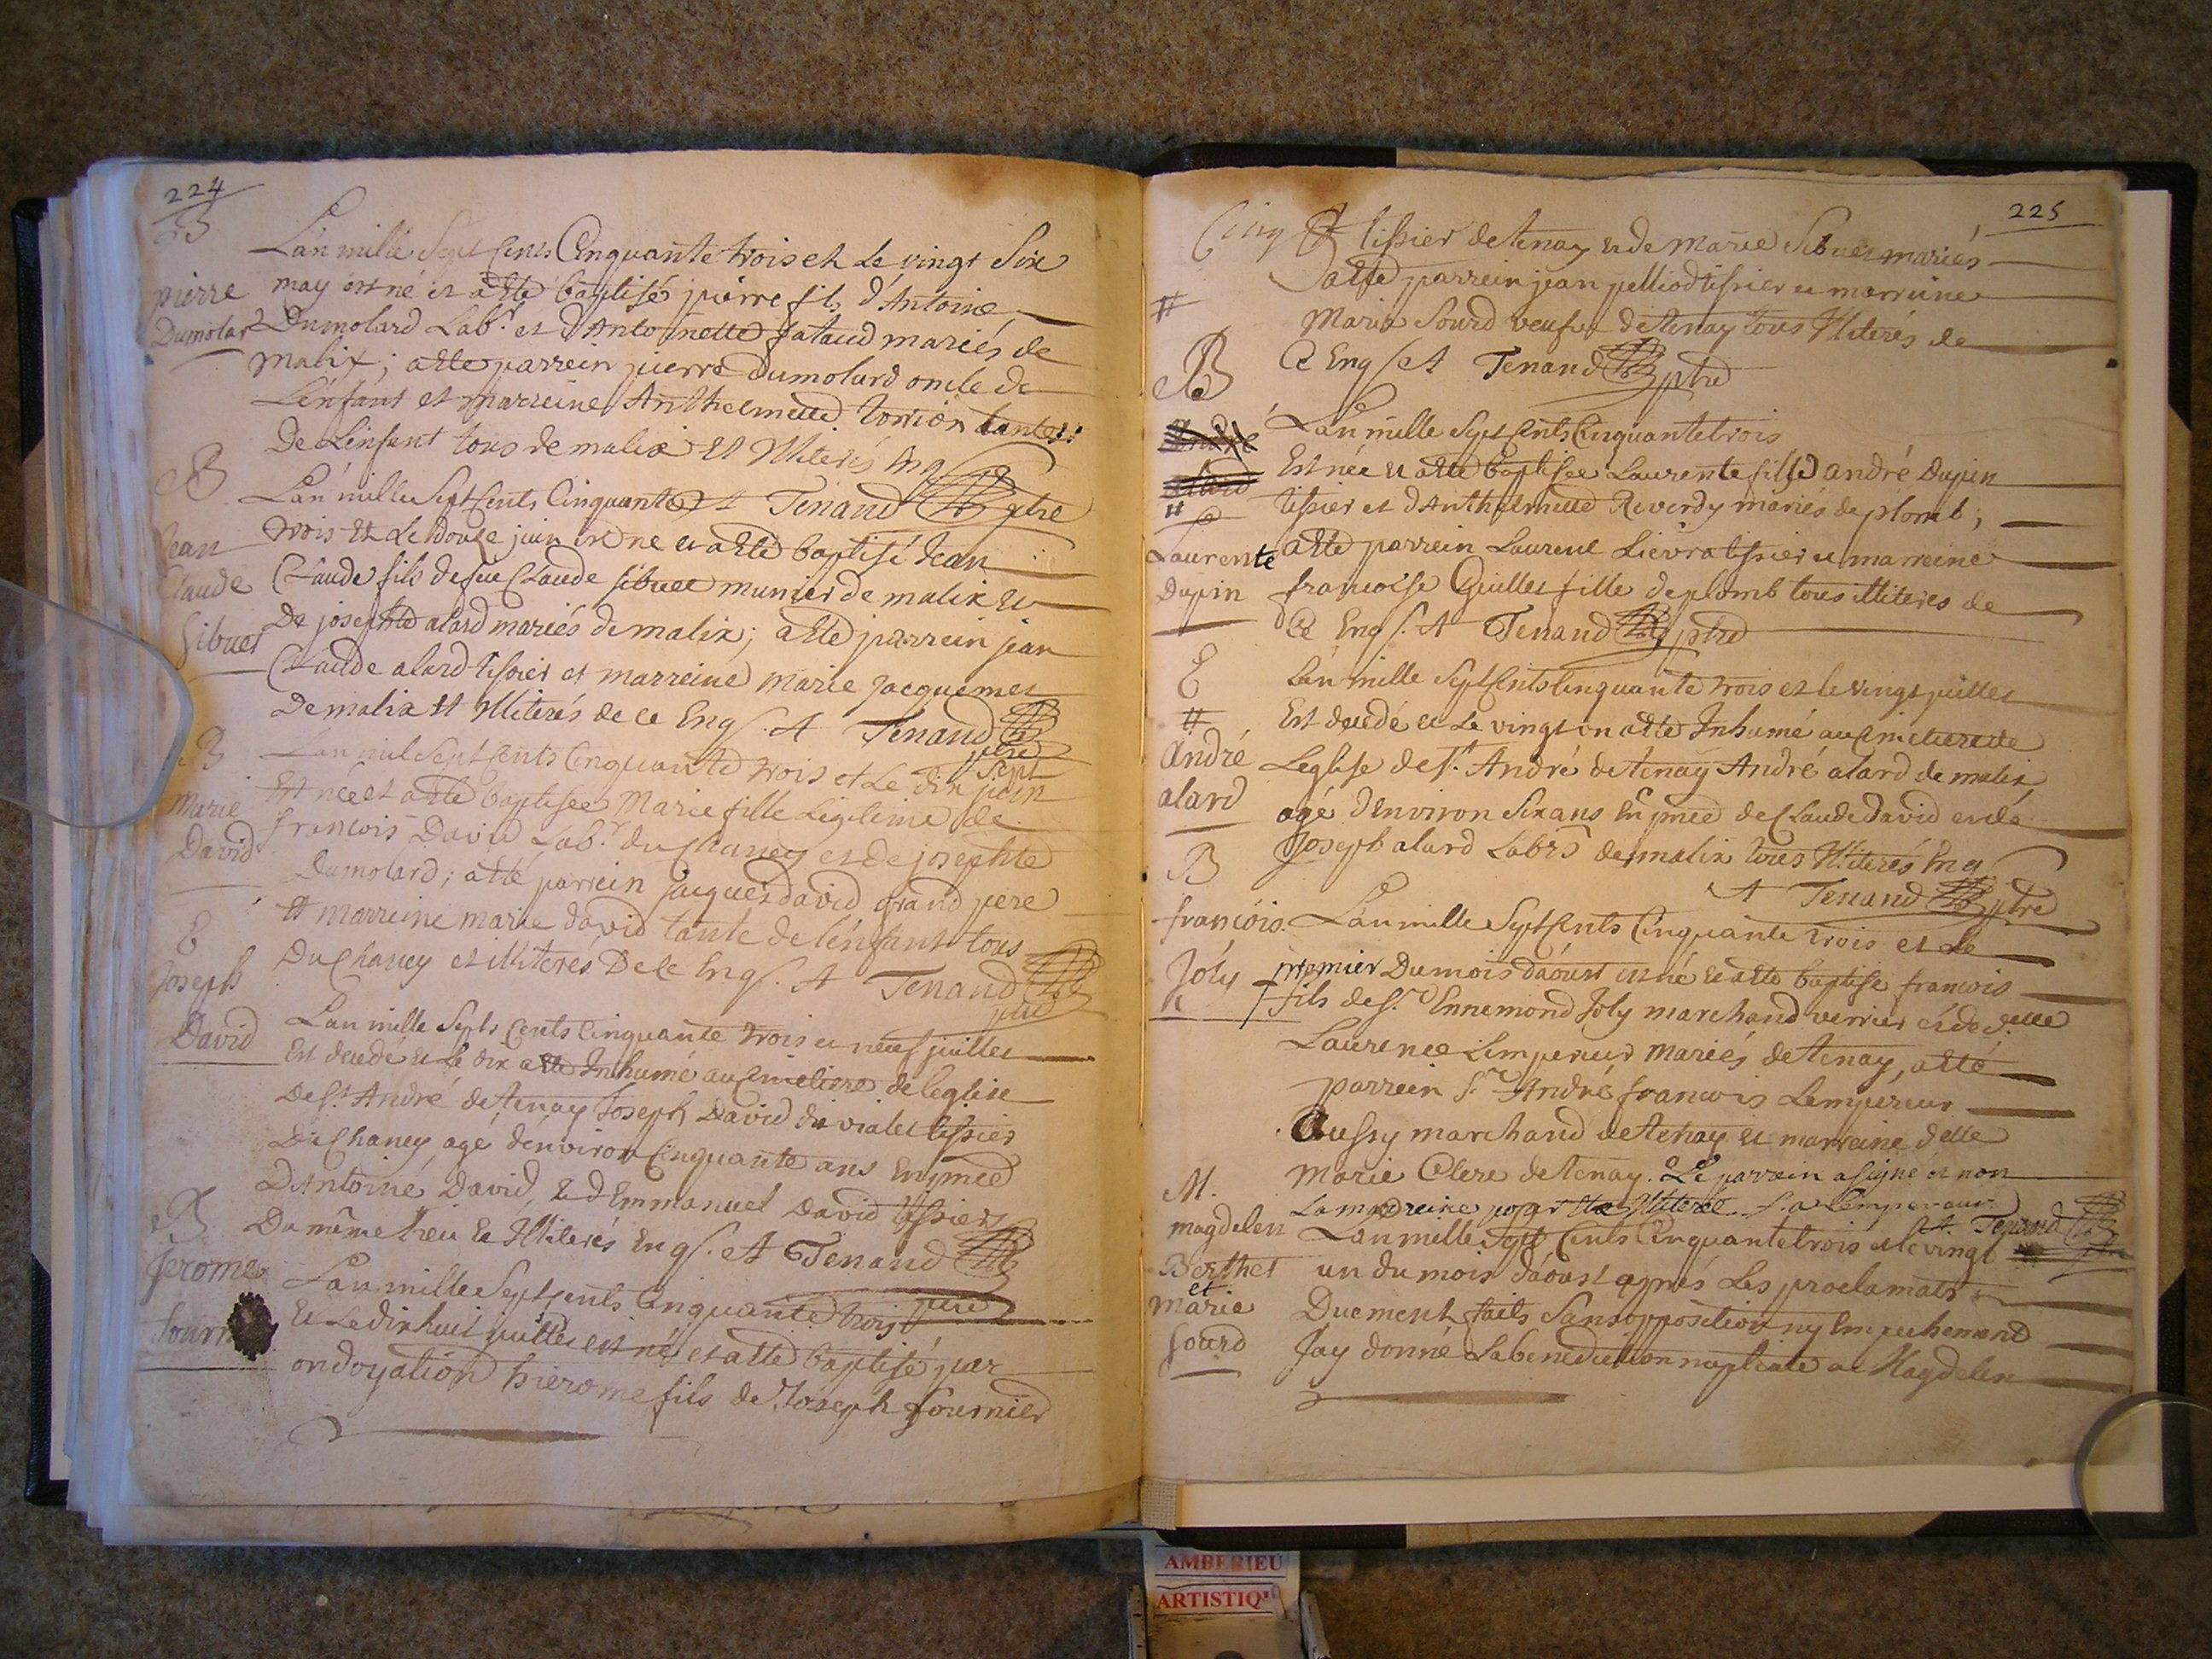 224
B
pierre
Dumolard
L'an mille Sept Cents Cinquante trois et Le vingt Six
may est né et a eté baptisé pierre fils d'Antoine
Dumolard Lab.r et d'Antoinette mariés de
malix; a eté parrein pierre Dumolard oncle de
L'enfant et marreine Anthelmette tante
De L'enfant tous de malix et Illiterés Enq
B
Jean
Claude
Sibuet
L'an mille Sept Cents Cinquante et A Tenand ptre
trois et Le douze juin est né et a eté baptisé Jean
Claude fils de feu Claude Sibuet munier de malix et
De josephte alard mariés de malix; a eté parrein jean
Claude alard tissier et marreine marie jacquemet
De malix et Illiterés de ce Enq s. A Tenand
ptre
B
Marie
David
L'an mil Sept Cents Cinquante trois et Le dix Sept juin
Est née et a eté baptisée Marie fille Legitime de
francois David Lab.r du Chaney et de josephte
Dumolard; a eté parrein jacques david grand pere
et marreine marie david tante de l'enfant tous
Du Chaney et illiterés De ce Enq s. A Tenand
ptre
E
Joseph
David
L'an mille Sept Cents Cinquante trois et neuf juillet
Est decedé et Le dix a eté Inhumé au Cimetiere de leglise
De S.t André de tenay Joseph David dit vialet tissier
Du Chaney agé d'environ Cinquante ans En pnce
D'Antoine David, et d'Emmanuel David tissiers
Du même lieu et Illiterés Enq s. et A Tenand
ptre
B
Jerome
L'an mille Sept Cents Cinquante trois
Et Le dix huit juillet est né et a eté baptisé par
ondoyation hierome fils de Joseph fournier
225
Cinq
tissier de tenay et de marie Sibuet mariés
a eté parrein jean pelliod tissier et marreine
Marie Sourd veufve de tenay tous Illiterés de
Ce Enq s et A Tenand ptre
B
André
alard
Laurente
Dupin
L'an mille Sept Cents Cinquante trois
Est née et a eté baptisée Laurente fille d'andré Dupin
tissier et d'Anthelmette Reverdy mariés de plomb;
a eté parrein Laurent Lievra tissier et marreine
francoise Guillet fille de plomb tous illiterés de
Ce Enq s. A Tenand ptre
E
André
alard
L'an mille Sept Cents Cinquante trois et le vingt juillet
Est decedé et Le vingt un a eté Inhumé au Cimetiere de
Leglise de S.t André de tenay André alard de malix
agé d'Environ Six ans En pnce de Claude David et de
Joseph alard Lab.rs de malix tous Illiterés Enq
et A Tenand ptre
B
francois
Joly
L'an mille Sept Cents Cinquante trois et Le
premier Du mois d'aoust est né et a eté baptisé francois
fils de S.r Ennemond Joly marchand verrier et de d.elle
Laurence Lempereur mariés de tenay, a eté
parrein S.r André francois Lempereur
Aussy marchand de tenay et marreine d.elle
Marie Clerc de tenay. Le parrein a signé et non
La marreine pour etre Illiterée f. a Lempereur
A. Tenand ptre
M.
magdelen
Berthet
et
marie
Sourd
L'an mille Sept Cents Cinquante trois et le vingt
un du mois d'aoust aprés Les proclamatz
Duement faits Sans opposition ny Empechement
Jay donné La benediction nuptiale a Magdelen
AMBERIEU
ARTISTIQU